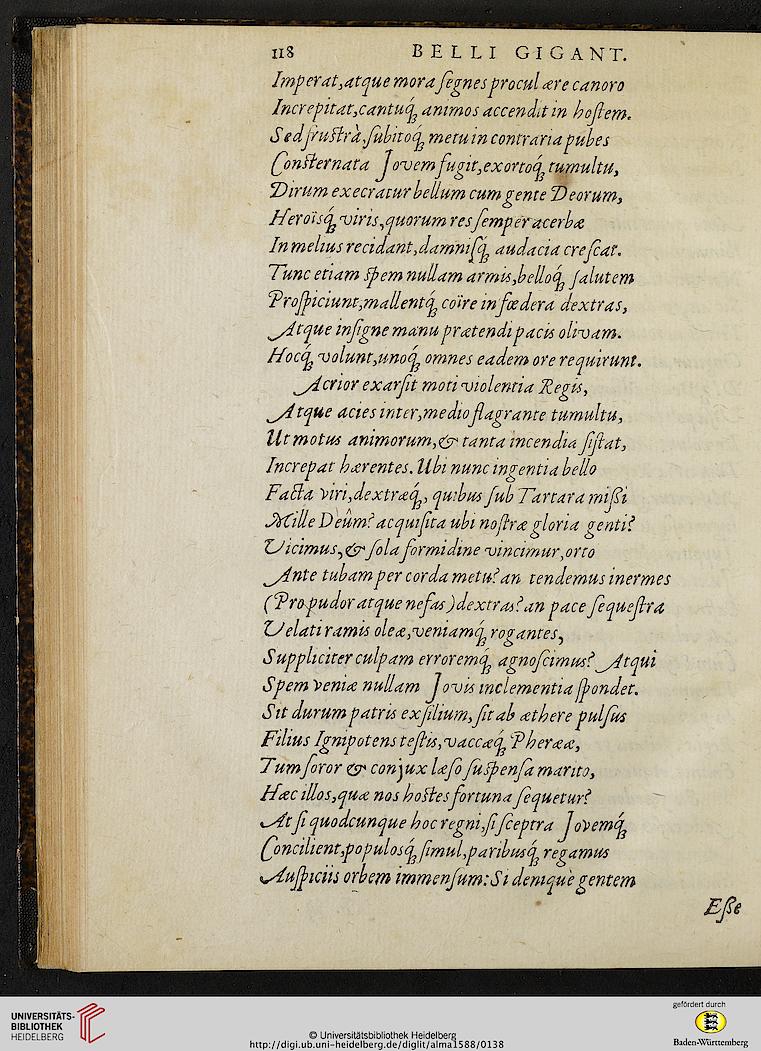 118 BELLI GIGANT.
Imperat, atque mora ſegnes procul ære canoro
Increpitat, cantuq́ꝫ animos accendit in hoſtem.
Sed fruſtrà, ſubitoq́ꝫ metu in contraria pubes
Conſternata Jovem fugit, exortoq́ꝫ tumultu,
Dirum execratur bellum cum gente Deorum,
Heroïsq́ꝫ viris, quorum res ſemper acerbæ
In melius recidant, damniſq́ꝫ audacia creſcat.
Tunc etiam ſpem nullam armis, belloq́ꝫ ſalutem
Proſpiciunt, mallentq́ꝫ coïre in fœdera dextras,
Atque inſigne manu prætendi pacis olivam.
Hocq́ꝫ volunt, unoq́ꝫ omnes eadem ore requirunt.
Acrior exarſit moti violentia Regis,
Atque acies inter, medio flagrante tumultu,
Ut motus animorum, & tanta incendia ſiſtat,
Increpat hærentes. Ubi nunc ingentia bello
Facta viri, dextræq́ꝫ, quibus ſub Tartara miſſi
Mille Deûm? acquiſita ubi noſtræ gloria genti?
Vicimus, & ſola formidine vincimur, orto
Ante tubam per corda metu? an tendemus inermes
(Pro pudor atque nefas) dextras? an pace ſequeſtra
Velati ramis oleæ, veniamq́ꝫ rogantes,
Suppliciter culpam erroremq́ꝫ agnoſcimus? Atqui
Spem veniæ nullam Jovis inclementia ſpondet.
Sit durum patris exſilium, ſit ab æthere pulſus
Filius Ignipotens teſtis, vaccæq́ꝫ Pherææ,
Tum ſoror & conjux læſo ſuſpenſa marito,
Hæc illos, quæ nos hoſtes fortuna ſequetur?
At ſi quodcunque hoc regni, ſi ſceptra Jovemq́ꝫ
Concilient, populosq́ꝫ ſimul, paribusq́ꝫ regamus
Auſpiciis orbem immenſum: Si denique gentem
Eſſe
UNIVERSITÄTS-
BIBLIOTHEK
HEIDELBERG
© Universitätsbibliothek Heidelberg
http://digi.ub.uni-heidelberg.de/diglit/alma1588/0138
gefördert durch
Baden-Württemberg